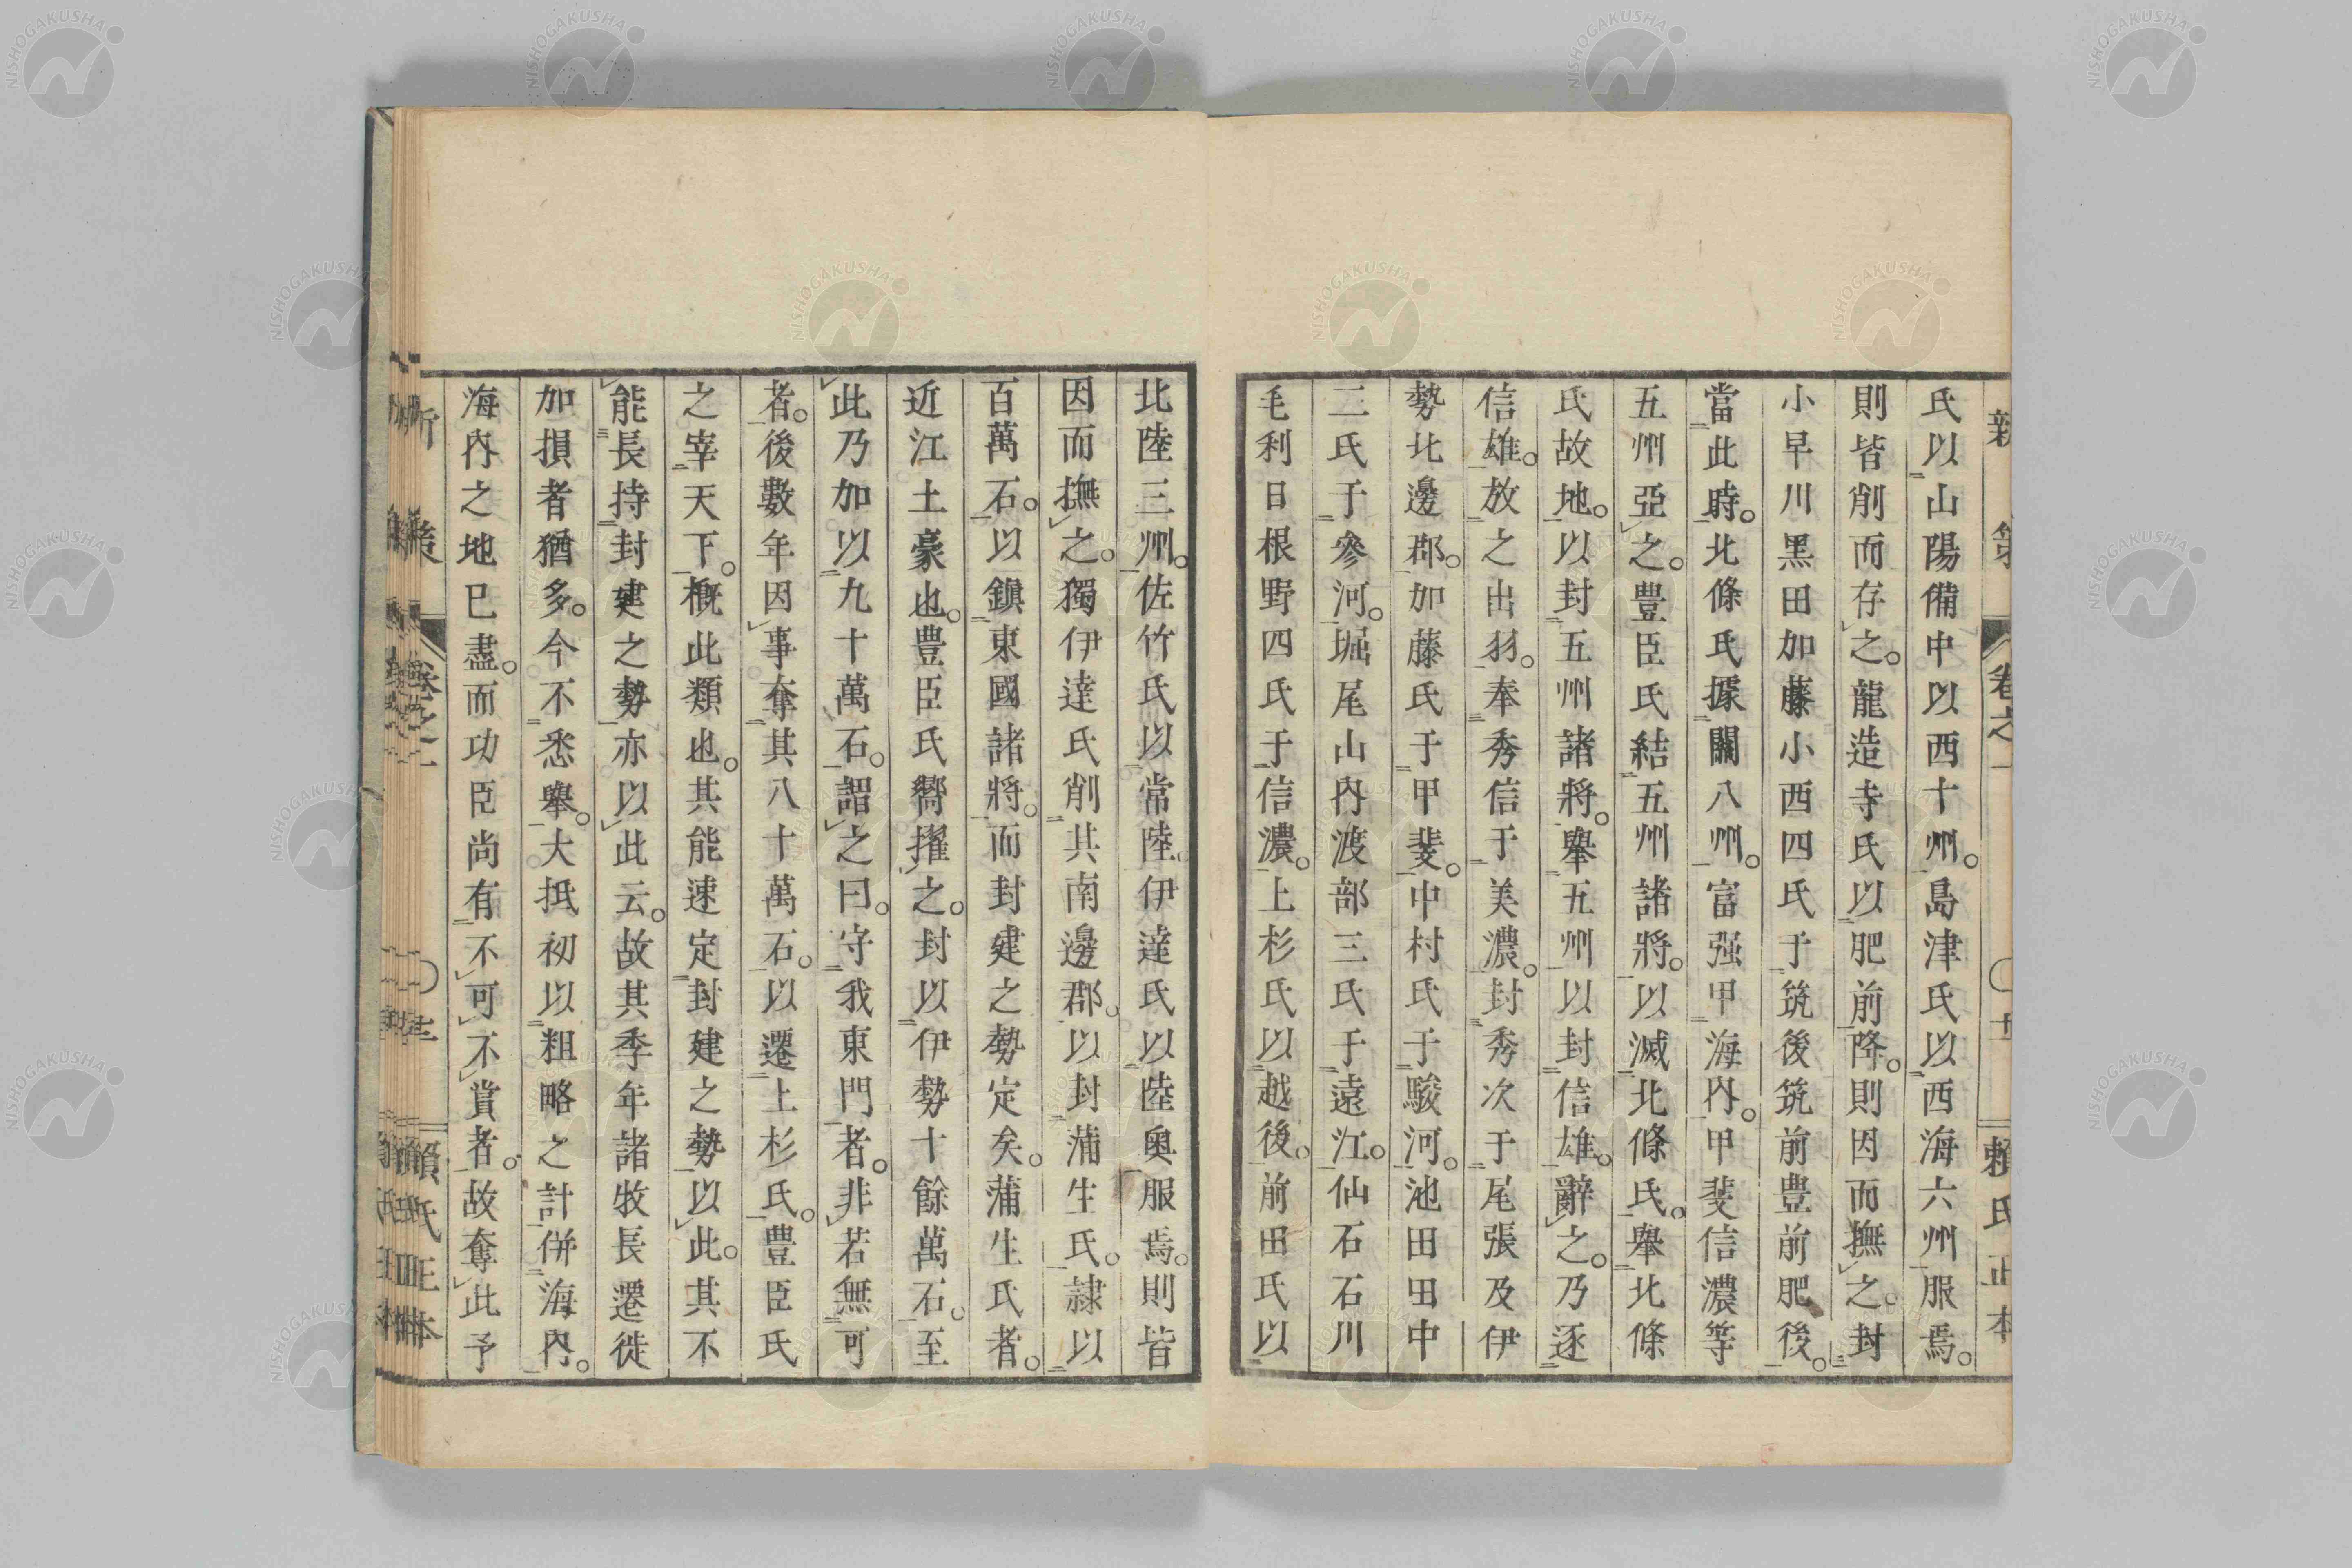 氏以山陽備中以西十州。島津氏以西海六州服焉。
則皆削而存之。龍造寺氏以肥前降。則因而撫之。封
小早川黑田加藤小西四氏于筑後筑前豊前肥後。
當此時。北條氏據關八州。富强甲海內。甲斐信濃等
五州亞之。豊臣氏結五州諸將。以滅北條氏。舉北條
氏故地。以封五州諸將。舉五州以封信雄。辭之。乃逐
信雄。放之出羽。奉秀信于美濃。封秀次于尾張及伊
勢北邊郡。加藤氏于甲斐。中村氏于駿河。池田田中
二氏于參河。堀尾山內渡部三氏于遠江。仙石石川
毛利日根野四氏于信濃。上杉氏以越後。前田氏以
北陸三州。佐竹氏以常陸。伊達氏以陸奧服焉。則皆
因而撫之。獨伊達氏削其南邊郡。以封蒲生氏。隷以
百萬石。以鎭東國諸將。而封建之勢定矣。蒲生氏者。
近江土豪也。豊臣氏嚮擢之。封以伊勢十餘萬石。至
此乃加以九十萬石。謂之曰。守我東門者。非若無可
者。後數年因事奪其八十萬石。以遷上杉氏。豊臣氏
之宰天下。概此類也。其能速定封建之勢以此。其不
能長持封建之勢亦以此云。故其季年諸牧長遷徙
加損者猶多。今不悉舉。大抵初以粗略之計併海內。
海內之地已盡。而功臣尚有不可不賞者。故奪此予
新策
卷之一
賴氏正本